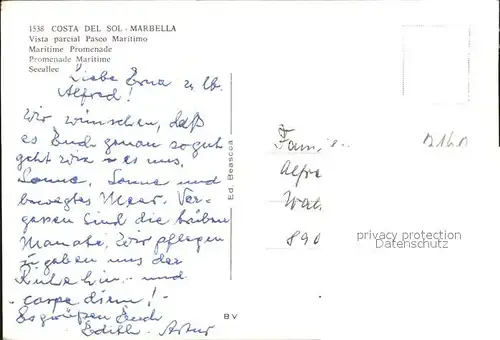 1538 COSTA DEL SOL - MARBELLA
Vista parcial Paseo Marítimo
Maritime Promenade
Promenade Maritime
Seeallee
Liebe Erna u. lb.
Alfred!
Wir wünschen, daß
es Euch genau so gut
geht wie es uns.
Sonne, Sonne und
bewegtes Meer. Ver-
gessen sind die trüben
Monate. Wir pflegen
uns der
Ruhe hin - und
- carpe diem! -
Es grüßen Euch
Edith - Artur
Ed. Beascoa
BV
Famil
Alfre
Wal
890
privacy protection
Datenschutz